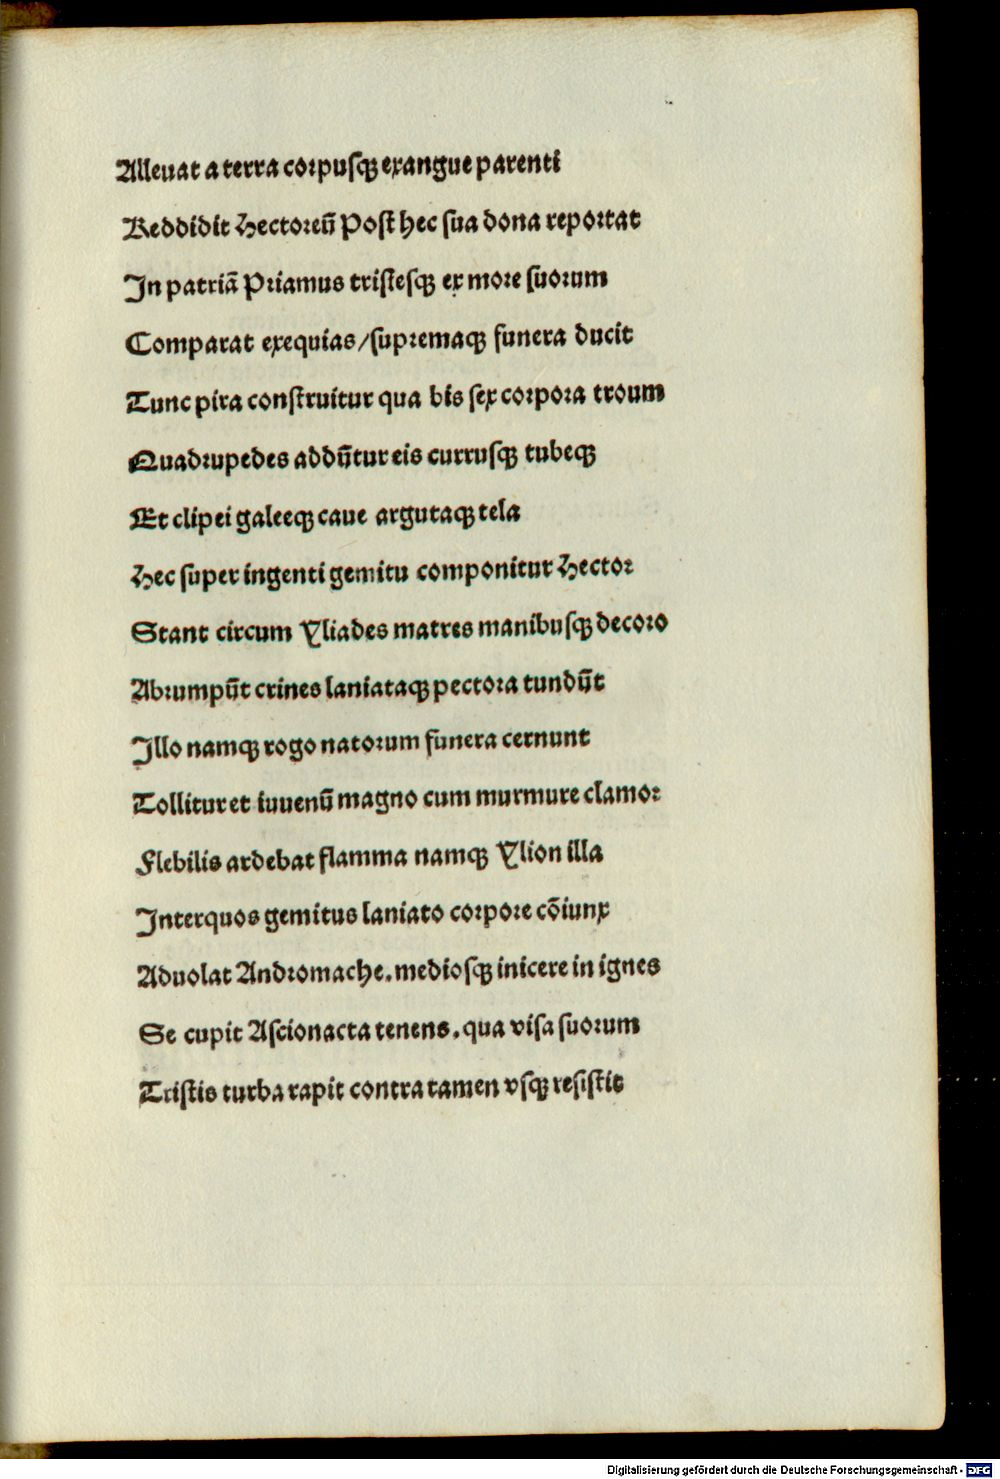 Alleuat a terra coꝛpuſqꝫ exangue parenti
Reddidit Hectoꝛeū Poſt hec ſua dona repoꝛtat
In patriā Pꝛiamus triſteſqꝫ ex moꝛe ſuoꝛum
Comparat exequias/ſupꝛemaqꝫ funera ducit
Tunc pira conſtruitur qua bis ſex coꝛpoꝛa troum
Quadꝛupedes addūtur eis curruſqꝫ tubeqꝫ
Et clipei galeeqꝫ caue argutaqꝫ tela
Hec ſuper ingenti gemitu componitur Hectoꝛ
Stant circum Yliades matres manibuſqꝫ decoꝛo
Abꝛumpūt crines laniataqꝫ pectoꝛa tundūt
Illo namqꝫ rogo natoꝛum funera cernunt
Tollitur et iuuenū magno cum murmure clamoꝛ
Flebilis ardebat flamma namqꝫ Ylion illa
Interquos gemitus laniato coꝛpoꝛe cōiunx
Aduolat Andꝛomache.medioſqꝫ inicere in ignes
Se cupit Aſcionacta tenens.qua viſa ſuoꝛum
Triſtis turba rapit contra tamen vſqꝫ reſiſtit
Digitalisierung gefördert durch die Deutsche Forschungsgemeinschaft - DFG